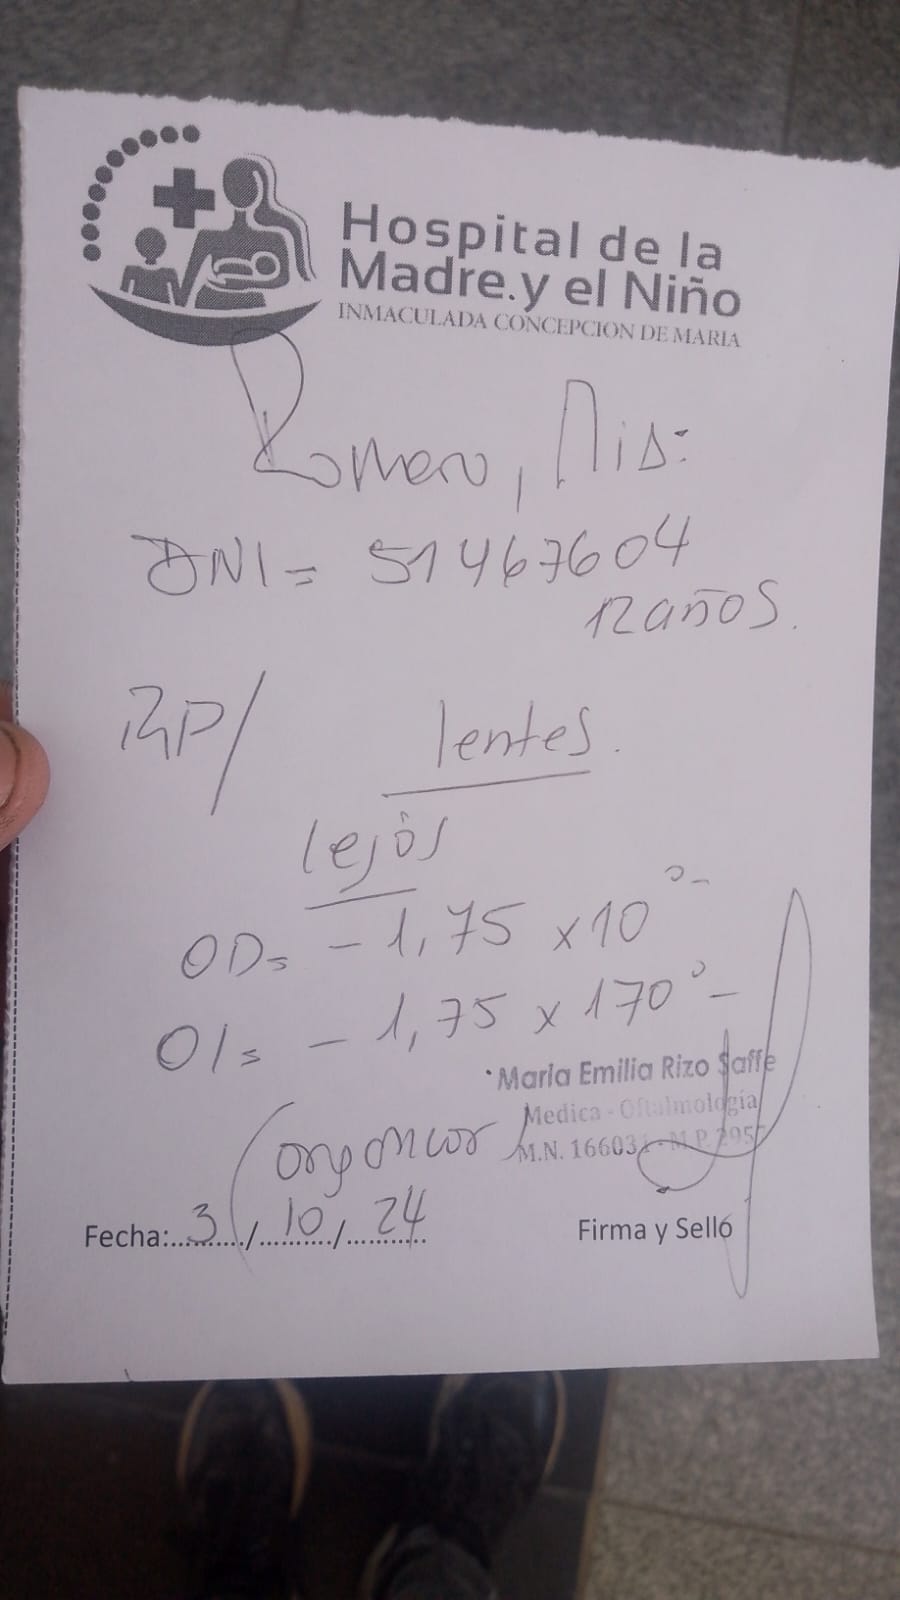 Hospital de la
Madre.y el Niño
INMACULADA CONCEPCION DE MARIA
Romero,
DNI = 51467604
12 años.
RP/ lentes.
lejos
OD= -1,75 x 10°-
OI= -1,75 x 170°-
Maria Emilia Rizo Saffe
Medica - Oftalmología
M.N. 166031 - M.P. 295
(orgánicos)
Fecha: 3 / 10 / 24
Firma y Sello